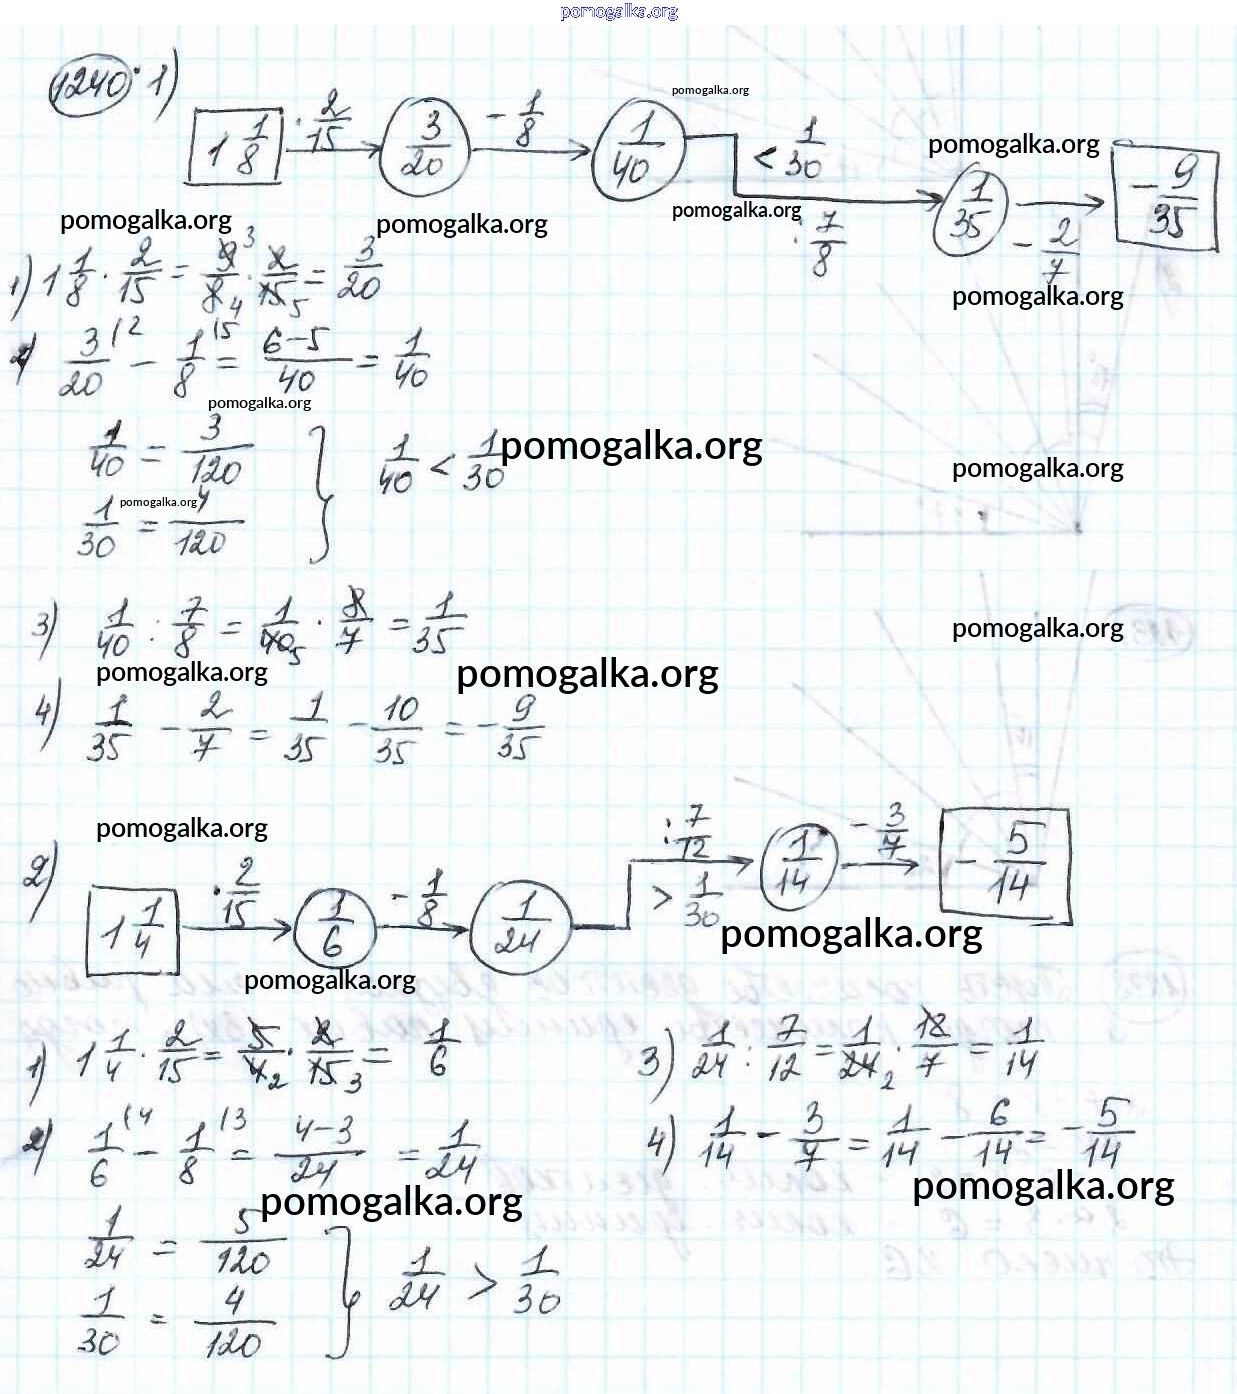 pomogalka.org
1240. 1)
1 1/8 → · 2/15 → 3/20 → - 1/8 → 1/40 → < 1/30 : 7/8 → 1/35 → - 2/7 → - 9/35
pomogalka.org
pomogalka.org
pomogalka.org pomogalka.org pomogalka.org
pomogalka.org
1) 1 1/8 · 2/15 = 9/8 · 2/15 = 3/20
2) 3/20 (2 - 1/8 (5 = 6-5/40 = 1/40
pomogalka.org
1/40 = 3/120
1/30 = 4/120 } 1/40 < 1/30
pomogalka.org
pomogalka.org
pomogalka.org
3) 1/40 : 7/8 = 1/40 · 8/7 = 1/35
pomogalka.org
pomogalka.org pomogalka.org
4) 1/35 - 2/7 = 1/35 - 10/35 = - 9/35
pomogalka.org
2) 1 1/4 → · 2/15 → 1/6 → - 1/8 → 1/24 → : 7/12 > 1/30 → 1/14 → - 3/7 → - 5/14
pomogalka.org
pomogalka.org
1) 1 1/4 · 2/15 = 5/4 · 2/15 = 1/6
3) 1/24 : 7/12 = 1/24 · 12/7 = 1/14
2) 1/6 (4 - 1/8 (3 = 4-3/24 = 1/24
4) 1/14 - 3/7 = 1/14 - 6/14 = - 5/14
pomogalka.org
pomogalka.org
1/24 = 5/120
1/30 = 4/120 } 1/24 > 1/30